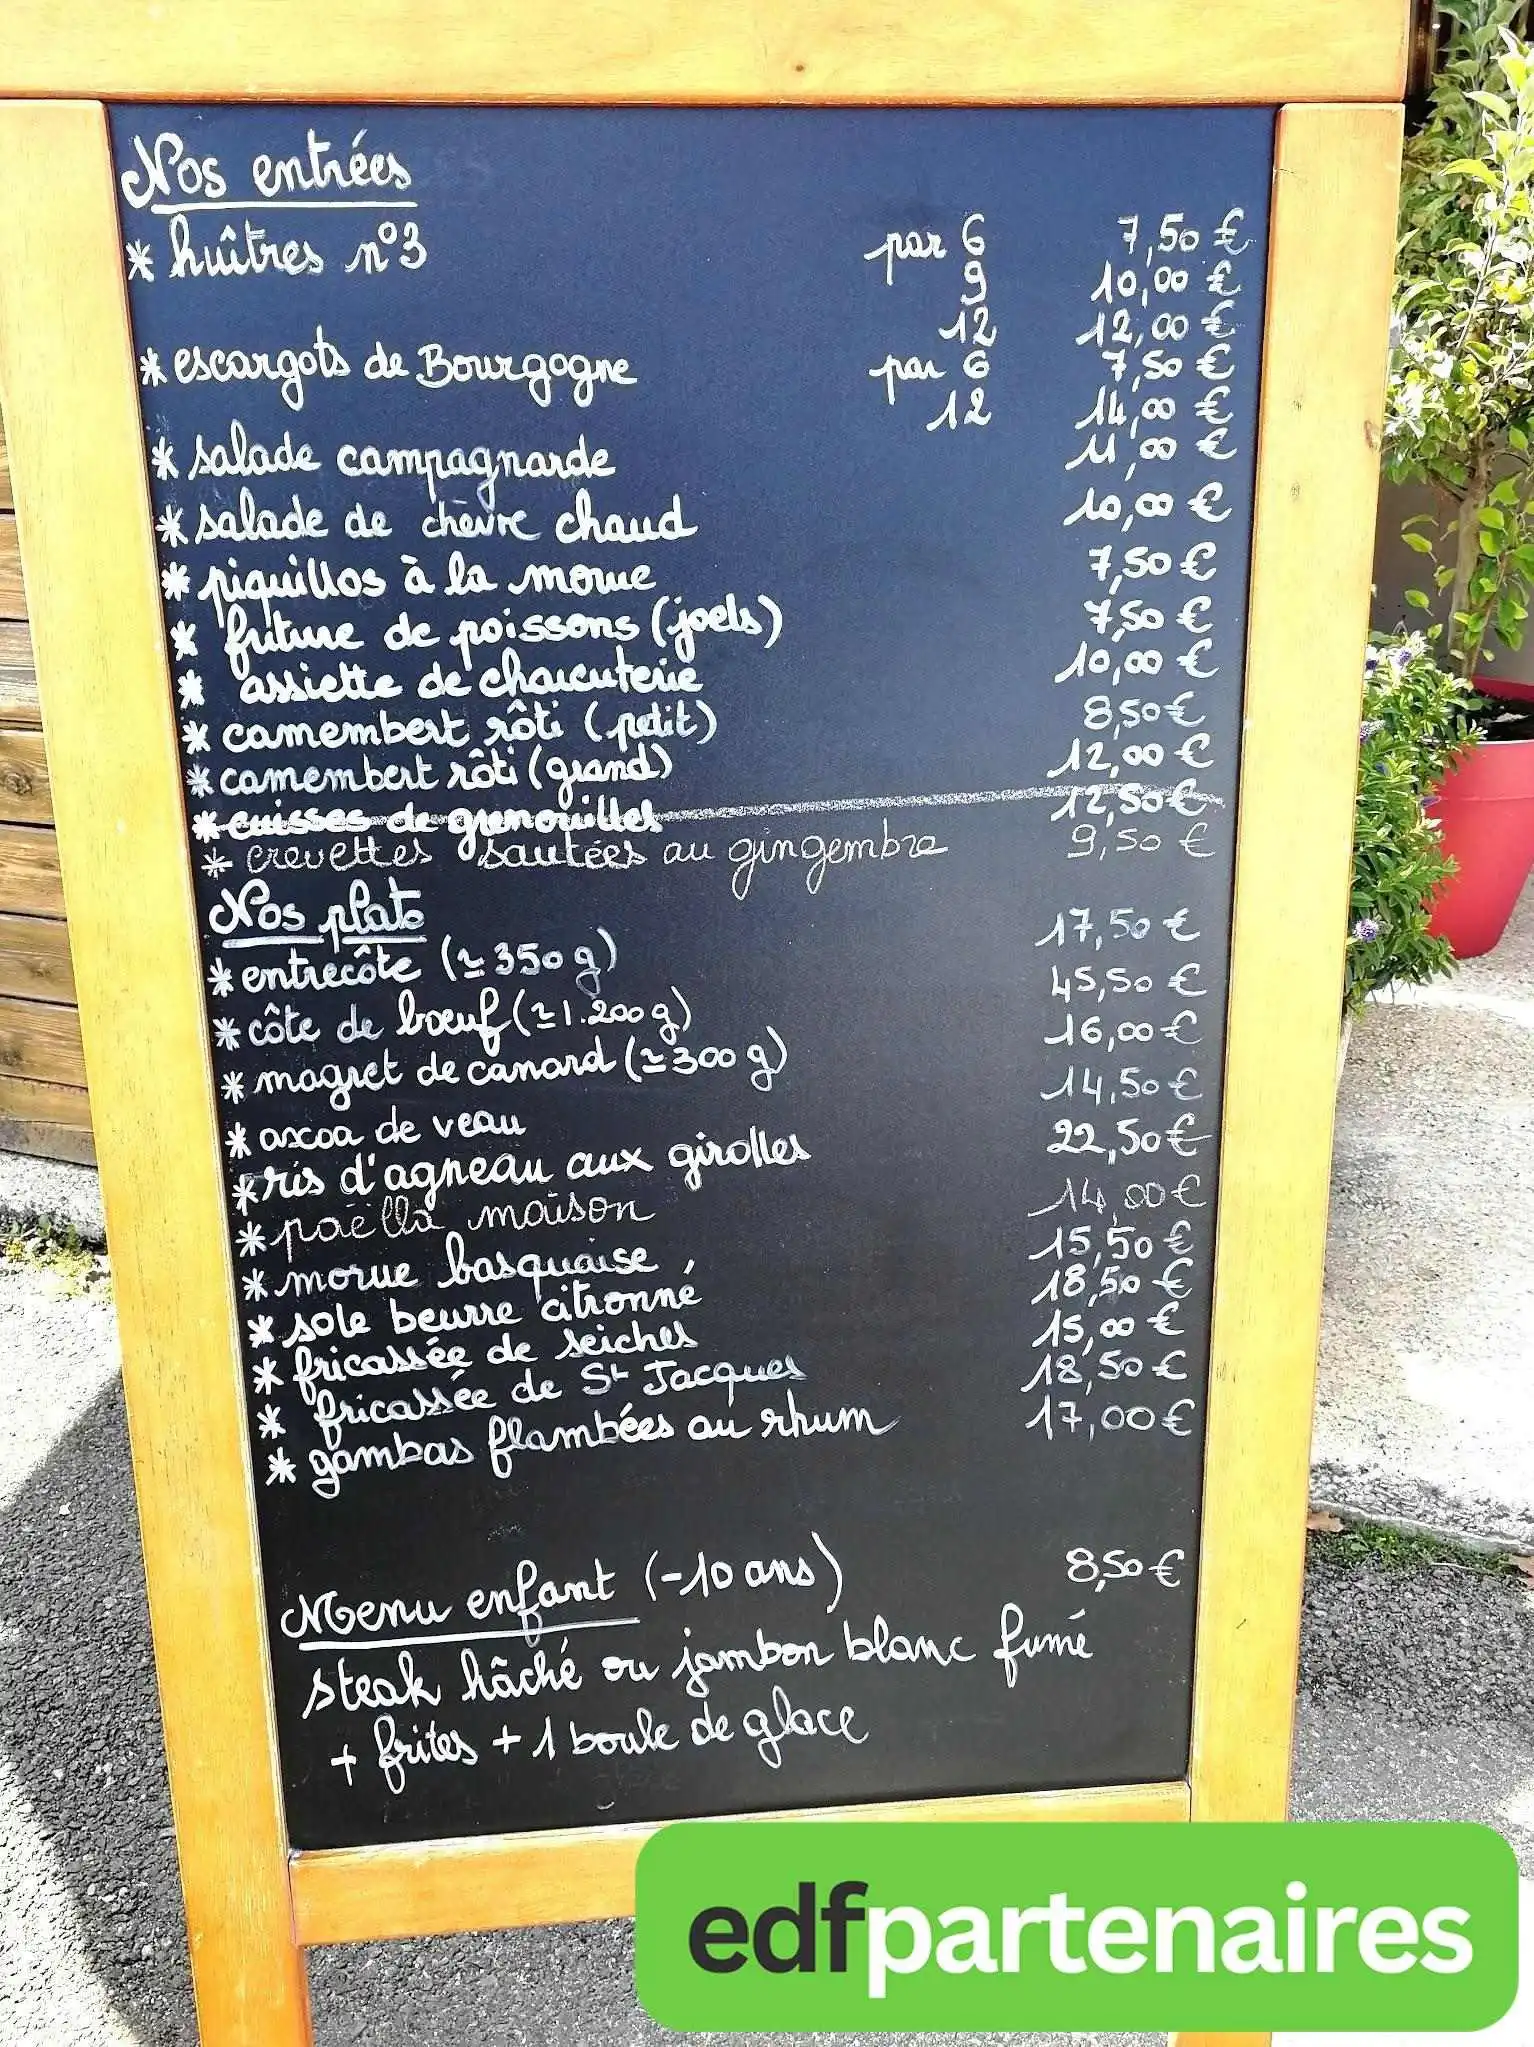 Nos entrées
* huîtres n°3 par 6 7,50 €
9 10,00 €
12 12,00 €
* escargots de Bourgogne par 6 7,50 €
12 14,00 €
* salade campagnarde 11,00 €
* salade de chèvre chaud 10,00 €
* piquillos à la morue 7,50 €
* friture de poissons (joels) 7,50 €
* assiette de charcuterie 10,00 €
* camembert rôti (petit) 8,50 €
* camembert rôti (grand) 12,00 €
* cuisses de grenouilles 12,50 €
* crevettes sautées au gingembre 9,50 €
Nos plats
* entrecôte (≃ 350 g) 17,50 €
* côte de boeuf (≃ 1.200 g) 45,50 €
* magret de canard (≃ 300 g) 16,00 €
* axoa de veau 14,50 €
* ris d'agneau aux girolles 22,50 €
* paëlla maison 14,00 €
* morue basquaise 15,50 €
* sole beurre citronné 18,50 €
* fricassée de seiches 15,00 €
* fricassée de St Jacques 18,50 €
* gambas flambées au rhum 17,00 €
Menu enfant (-10 ans) 8,50 €
steak hâché ou jambon blanc fumé
+ frites + 1 boule de glace
edfpartenaires